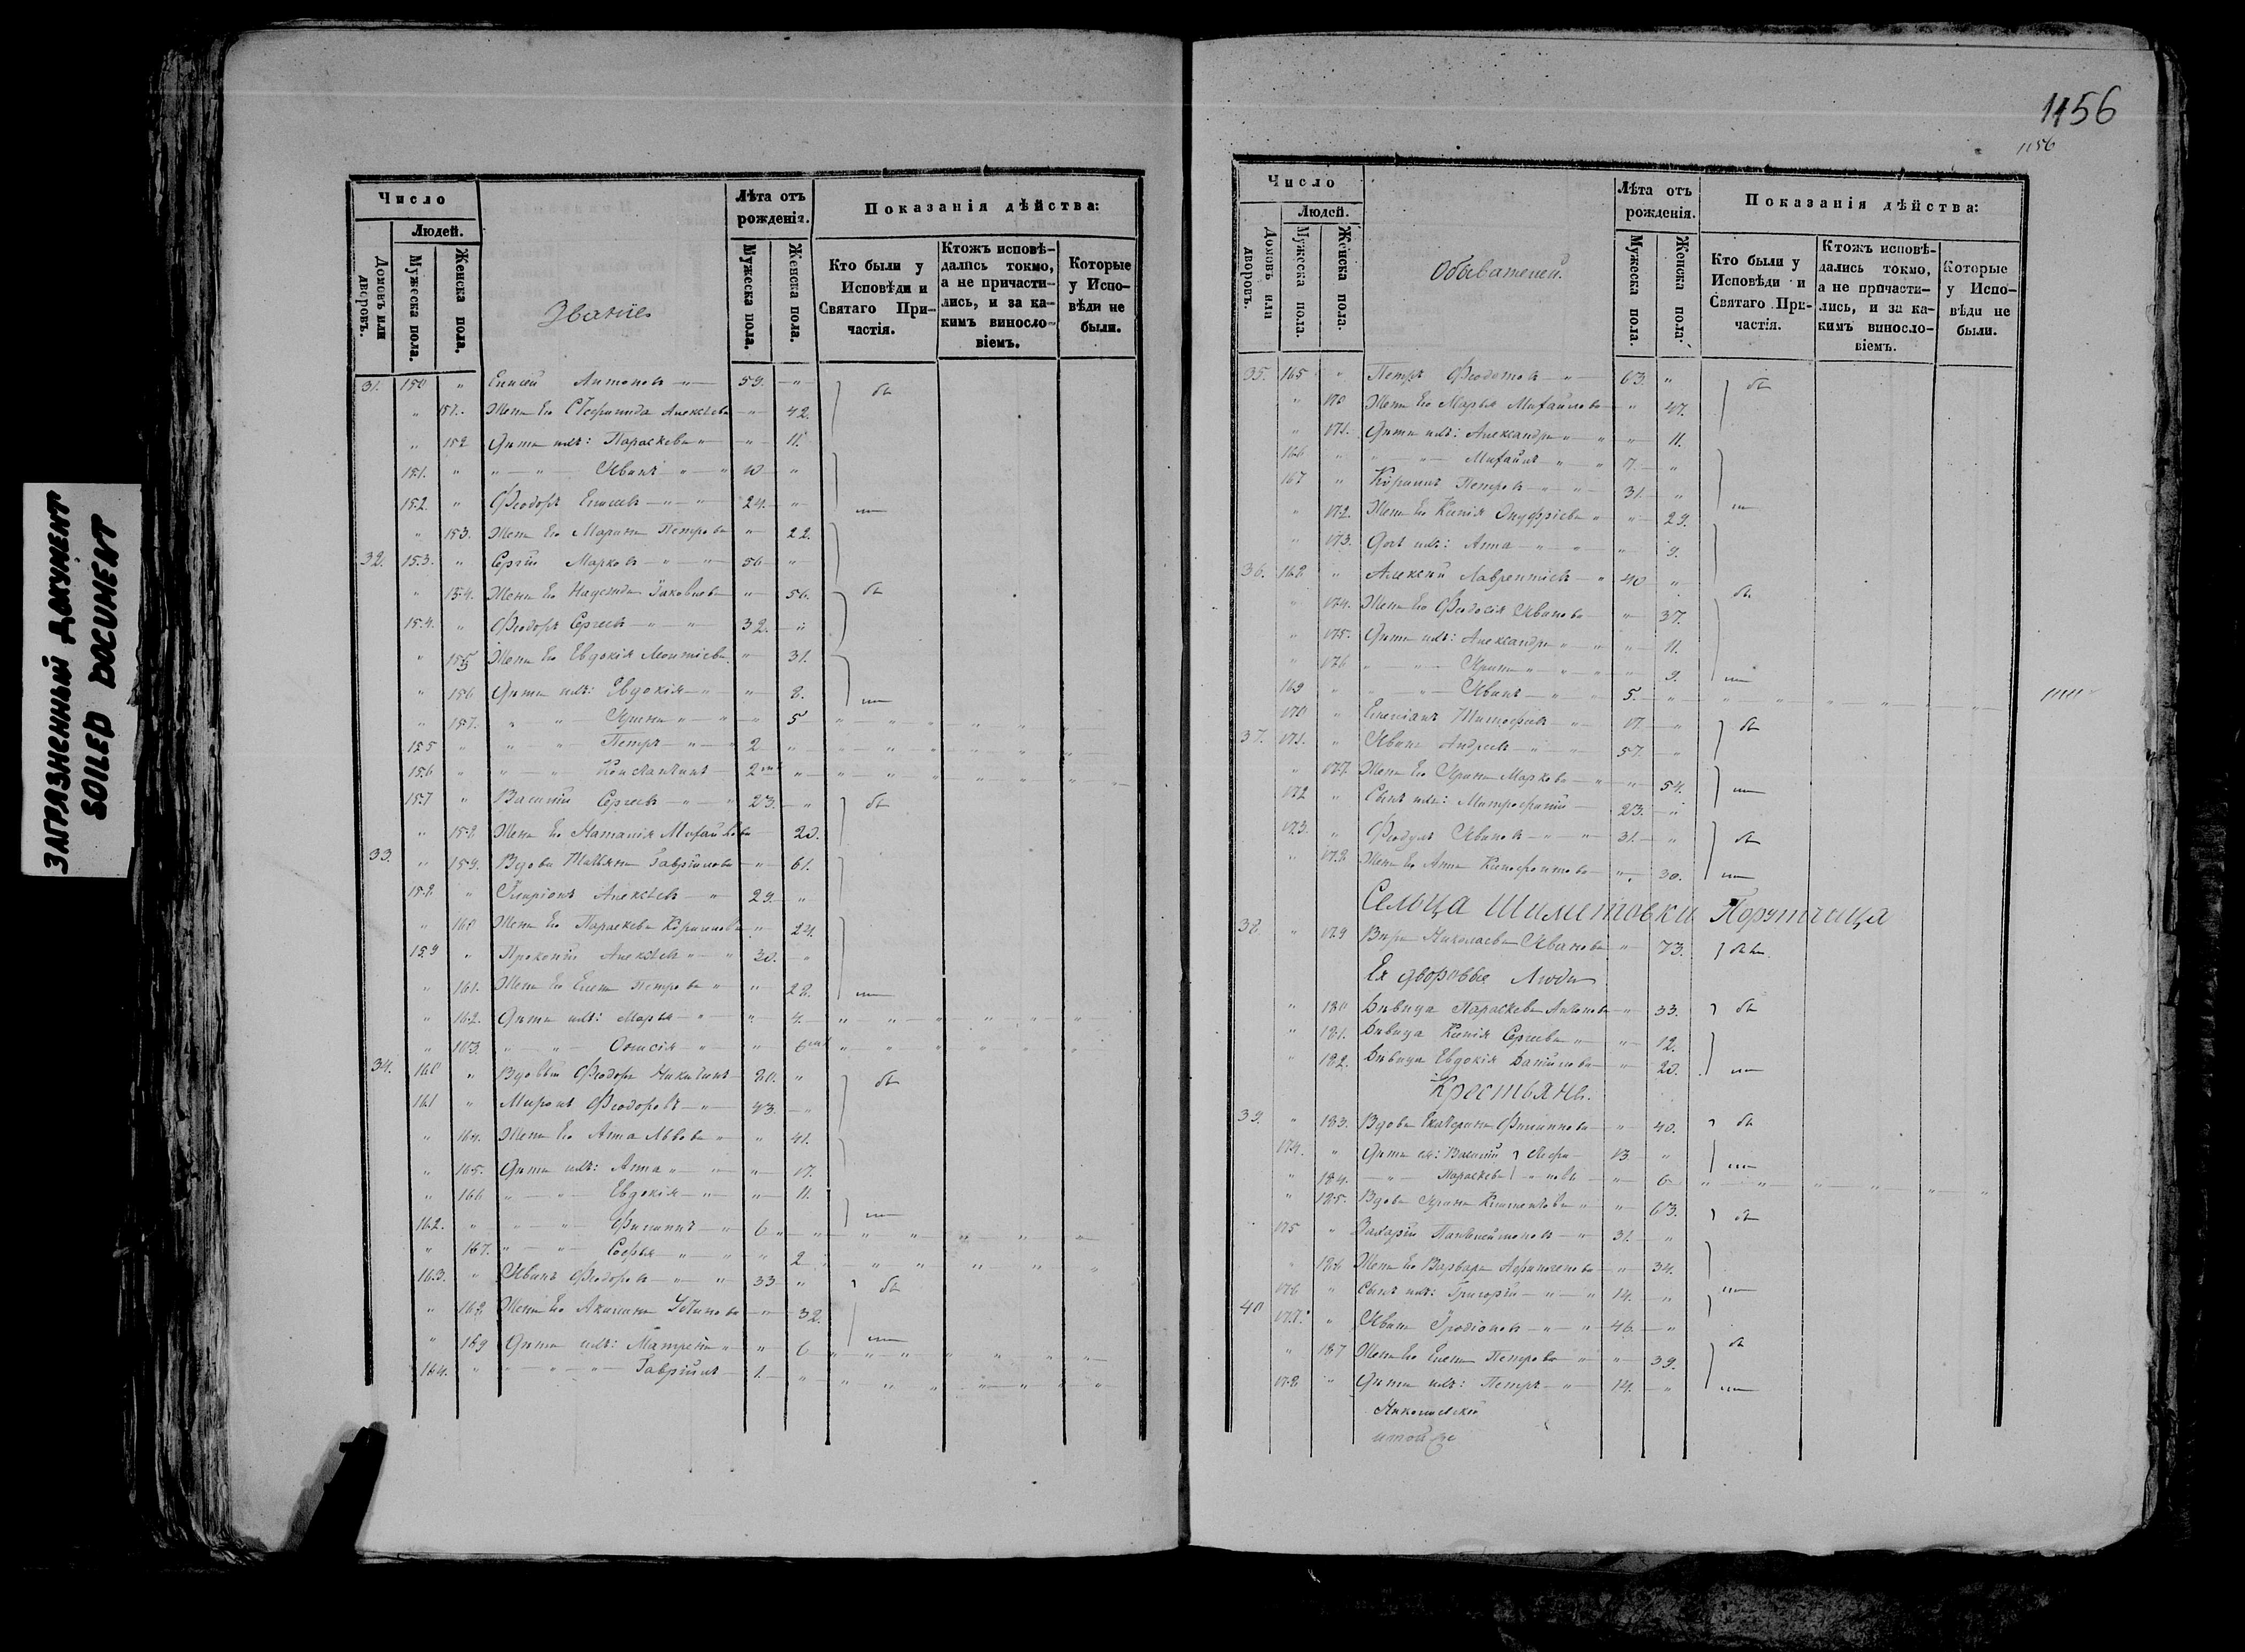 ЗАГРЯЗНЕННЫЙ ДОКУМЕНТ
SOILED DOCUMENT
Число
Людей.
Домовъ или дворовъ.
Мужеска пола.
Женска пола.
Званіе
Лѣта отъ рожденія.
Мужеска пола.
Женска пола.
Показанія дѣйства:
Кто были у Исповѣди и Святаго При-
частія.
Ктожъ исповѣ-
дались токмо,
а не причасти-
лись, и за ка-
кимъ винosло-
віемъ.
Которые
у Испо-
вѣди не
были.
31. 150 " Елисей Антоновъ 59. "
" 151. Жена Его Стефанида Алексѣева " 42.
" 152 Дѣти ихъ: Параскева " 11.
151. " Иванъ 10 "
152. " Феодоръ Елисеевъ 24. "
" 153. Жена Его Марина Петрова " 22.
32. 153. " Сергій Марковъ 56 "
" 154. Жена Его Надежда Яковлева " 56.
154. " Феодоръ Сергеевъ 32. "
" 155 Жена Его Евдокія Леонтіева " 31.
" 156 Дѣти ихъ: Евдокія " 8.
" 157. Ирина " 5
155 " Петръ 2 "
156 " Константинъ 2 "
157 " Василій Сергеевъ 23. "
" 158 Жена Его Наталія Михайлова 20.
33. " 159. Вдова Татіяна Гавріилова " 61.
158 " Алексѣевъ 29. "
" 160 Жена Его Параскева Кириллова " 24.
159 " Прокопій Алексѣевъ 30. "
" 161. Жена Его Елена Петрова " 22.
" 162. Дѣти ихъ: Марья " 4.
" 163. "
34. 160 " Вдовый Феодоръ Никитинъ 80. "
161 " Миронъ Феодоровъ 43. "
" 164. Жена Его Анна Львова " 41.
" 165. Дѣти ихъ: Анна " 17.
" 166 Евдокія " 11.
162. " Филиппъ 6 "
" 167. Софья " 2
163. " Иванъ Феодоровъ 33 "
" 168 Жена Его Акилина Устинова " 32.
" 169 Дѣти ихъ: Матрена " 6
164. " Гавріилъ 1. "
1156
1156
Число
Людей.
Домовъ или дворовъ.
Мужеска пола.
Женска пола.
Обывателей.
Лѣта отъ рожденія.
Мужеска пола.
Женска пола.
Показанія дѣйства:
Кто были у Исповѣди и Святаго При-
частія.
Ктожъ исповѣ-
дались токмо,
а не причасти-
лись, и за ка-
кимъ виносло-
віемъ.
Которые
у Испо-
вѣди не
были.
35. 165 " Петръ Феодотовъ 63. "
" 170 Жена Его Марья Михайлова " 47.
" 171. Дѣти ихъ: Александра " 11.
166 " Михаилъ 7. "
167 " Кириллъ Петровъ 31. "
" 172. Жена Его Ксенія Онуфріева " 29.
" 173. Дочь ихъ: Анна " 9.
36. 168 " Алексѣй Лаврентіевъ 40 "
" 174. Жена Его Феодосія Иванова " 37.
" 175. Дѣти ихъ: Александра " 11.
" 176 Ирина " 9.
169 " Иванъ 5. "
170 " Тимофеевъ 17. "
37. 171. " Иванъ Андреевъ 57. "
" 177. Жена Его Ирина Маркова " 54.
172 " Сынъ ихъ: Митрофаній 23. "
173. " Феодулъ Ивановъ 31. "
" 178 Жена Его Анна Ксенофонтова " 30.
Сельца Шиметовки Порутчица
38. " 179 Вѣра Николаева Иванова " 73.
Ея дворовые Люди
" 180 Дѣвица Параскева Антонова " 33.
" 181. Дѣвица Ксенія Сергеева " 12.
" 182. Дѣвица Евдокія Даніилова " 20.
Крестьяне.
39. " 183. Вдова Екатерина Филиппова " 40.
174. " Дѣти ея: Василій 13 "
" 184. Параскева " 6
" 185. Вдова Ирина Климентова " 63.
175 " Захарій Пантелеймоновъ 31. "
" 186 Жена Его Варвара " 34.
176 " Сынъ ихъ: Григорій 14. "
40 177. " Иванъ Иродіоновъ 46. "
" 187 Жена Его Елена Петрова " 39.
178 " Дѣти ихъ: Петръ 14. "